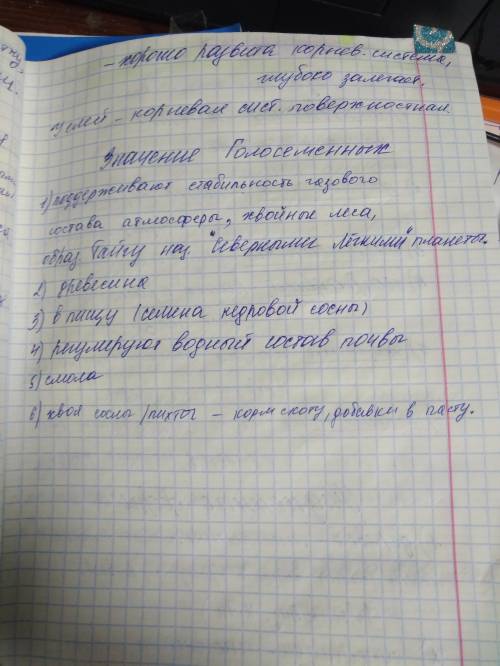 - хорошо развита корнев. система,
глубоко залегает.
У елей - корневая сист. поверхностная.
Значение Голосеменных
1) поддерживают стабильность газового
состава атмосферы, хвойные леса,
образ. Тайгу наз. "Северными Лёгкими" планеты.
2) древесина
3) в пищу (семена кедровой сосны)
4) регулируют водный состав почвы
5) смола
6) хвоя сосны/пихты - корм скоту, добавки в пасту.